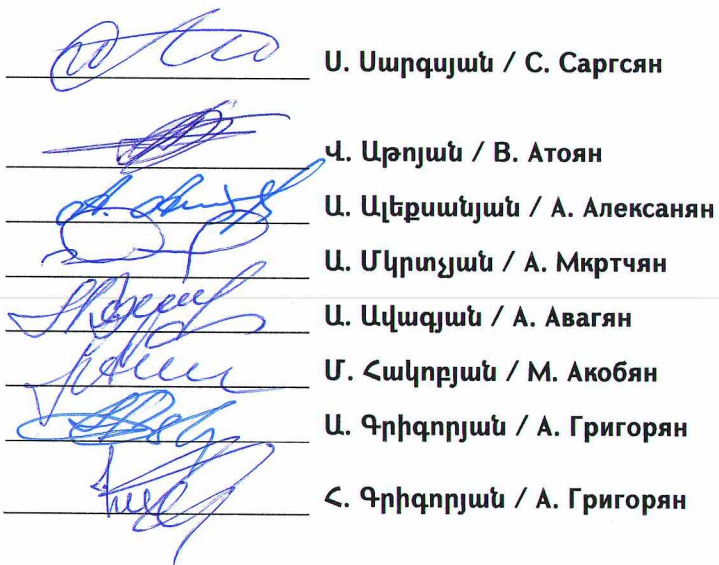 Ս. Սարգսյան / С. Саргсян
Վ. Աթոյան / В. Атоян
Ա. Ալեքսանյան / А. Алексанян
Ա. Մկրտչյան / А. Мкртчян
Ա. Ավագյան / А. Авагян
Մ. Հակոբյան / М. Акобян
Ա. Գրիգորյան / А. Григорян
Հ. Գրիգորյան / А. Григорян